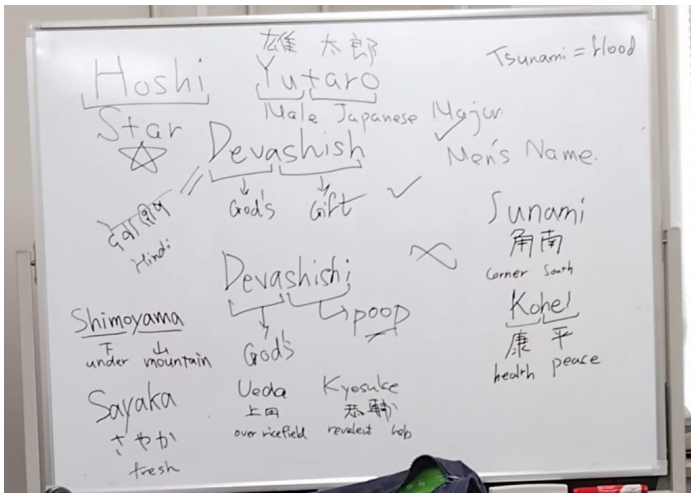 雄 太郎
Tsunami = flood
Hoshi
Star
Yutaro
Male Japanese Major
Men's Name.
Devashish
God's Gift
देवाशिष
Hindi
Devashishi
God's
poop
Sunami
角南
corner south
Kohei
康 平
health peace
Shimoyama
下 山
under mountain
Sayaka
さやか
fresh
Ueda
上田
over ricefield
Kyosuke
恭輔
help